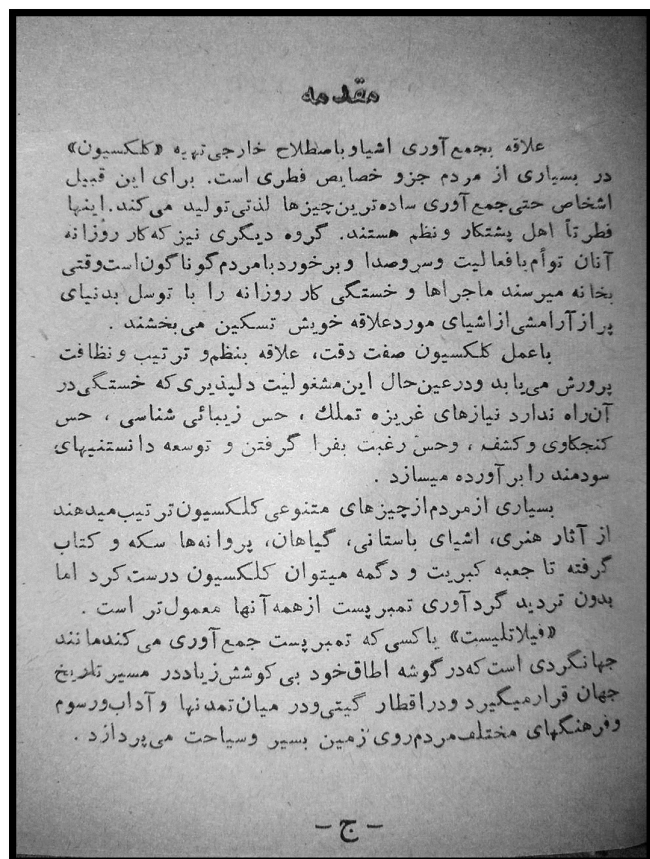 مقدمه
علاقه بجمع‌آوری اشیاوباصطلاح خارجی‌تهیه «کلکسیون»
در بسیاری از مردم جزو خصایص فطری است. برای این قبیل
اشخاص حتی‌جمع‌آوری ساده‌ترین‌چیزها لذتی‌تولید می‌کند.اینها
فطرتاً اهل پشتکار ونظم هستند. گروه دیگری نیز که‌کار روزانه
آنان توأم‌بافعالیت وسروصدا وبرخوردبامردم‌گوناگون‌است‌وقتی
بخانه میرسند ماجراها و خستگی کار روزانه را با توسل بدنیای
پرازآرامشی‌ازاشیای موردعلاقه خویش تسکین می‌بخشند .
باعمل کلکسیون صفت دقت، علاقه بنظم‌و ترتیب ونظافت
پرورش می‌یابد ودرعین‌حال این‌مشغولیت دلپذیری‌که خستگی‌در
آن‌راه ندارد نیازهای غریزه تملك ، حس زیبائی شناسی ، حس
کنجکاوی وکشف ، وحس رغبت بفرا گرفتن و توسعه دانستنیهای
سودمند رابرآورده میسازد .
بسیاری ازمردم‌ازچیزهای متنوعی‌کلکسیون‌ترتیب‌میدهند
از آثار هنری، اشیای باستانی، گیاهان، پروانه‌ها سکه و کتاب
گرفته تا جعبه کبریت و دگمه میتوان کلکسیون درست‌کرد اما
بدون تردید گردآوری تمبرپست ازهمه‌آنها معمول‌تر است .
«فیلاتلیست» یاکسی‌که تمبرپست جمع‌آوری می‌کندمانند
جهانگردی است‌که‌درگوشه اطاق‌خود بی‌کوشش‌زیاددر مسیرتاریخ
جهان قرارمیگیرد ودراقطار گیتی‌ودر میان‌تمدنها و آداب‌ورسوم
وفرهنگهای مختلف‌مردم‌روی زمین بسیر وسیاحت می‌پردازد .
- ج -